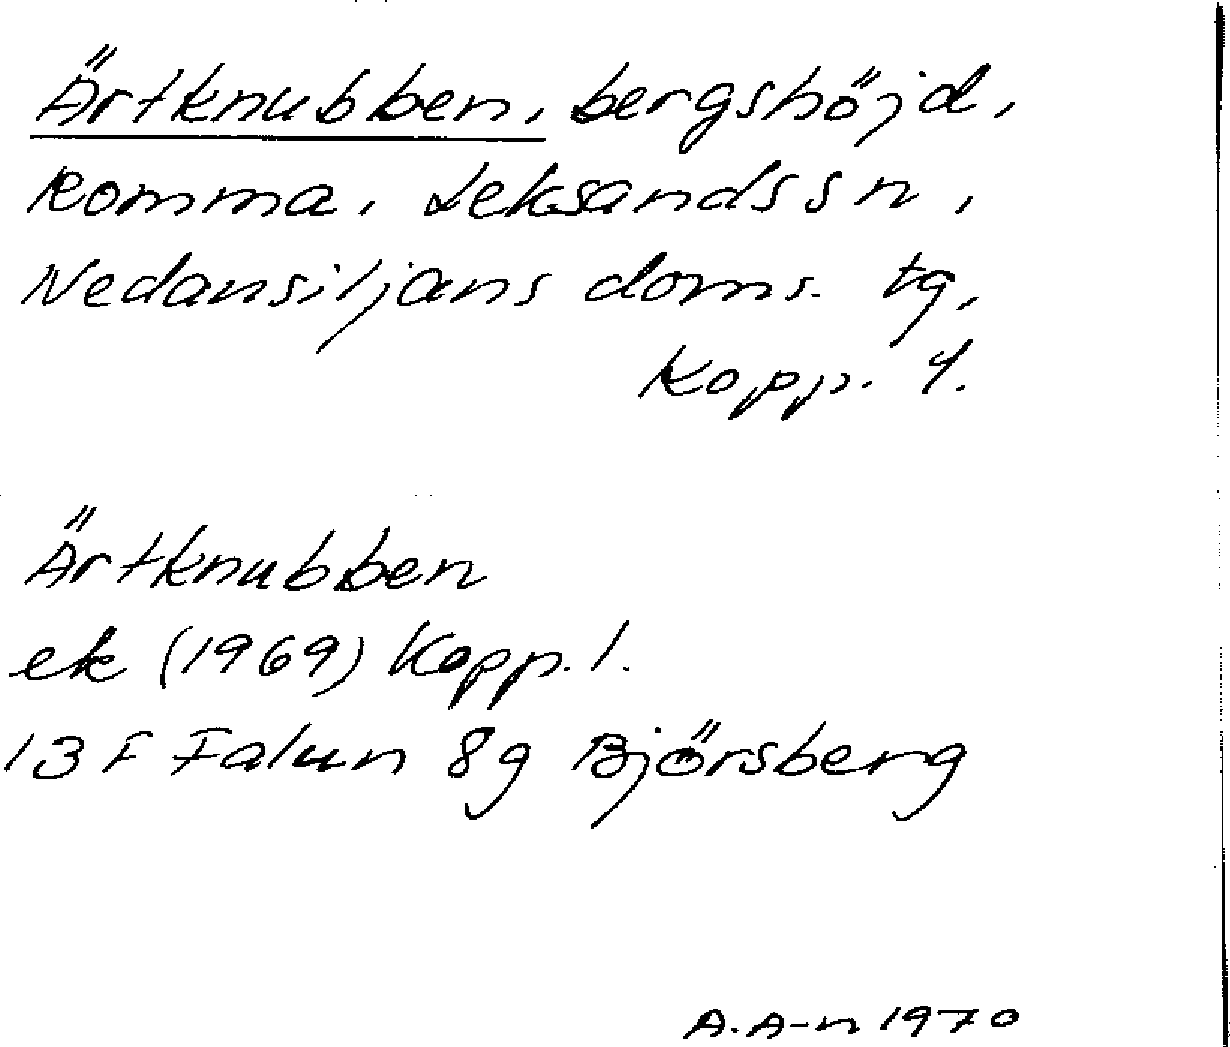 Ärtknubben, bergshöjd,
Romma, Leksands sn,
Nedansiljans doms. tg,
Kopp. l.
Ärtknubben
ek (1969) Kopp. l.
13 F Falun 8g Björsberg
A.A-n 1970